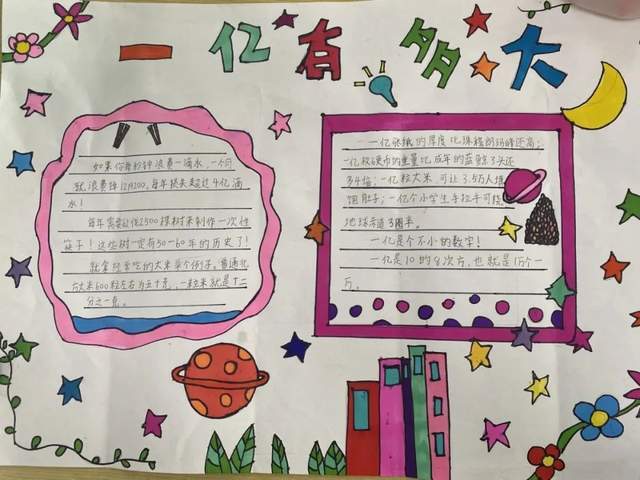 一亿有多大
如果你每秒钟浪费一滴水,一个月
就浪费掉 每年损失超过4亿滴
水!
每年需要砍伐2500棵树来制作一次性
筷子!这些树一定有50—60年的历史了!
就拿经常吃的大米举个例子,普通的
大米600粒左右为五十克,一粒米就是十二
分之一克。
一亿张纸的厚度比珠穆朗玛峰还高;
一亿枚硬币的重量比成年的蓝鲸3头还
多4倍;一亿粒大米可让3.5万人填
饱肚子;一亿个小学生手拉手可绕
地球赤道3圈半。
一亿是个不小的数字!
一亿是10的8次方,也就是 个一
万。